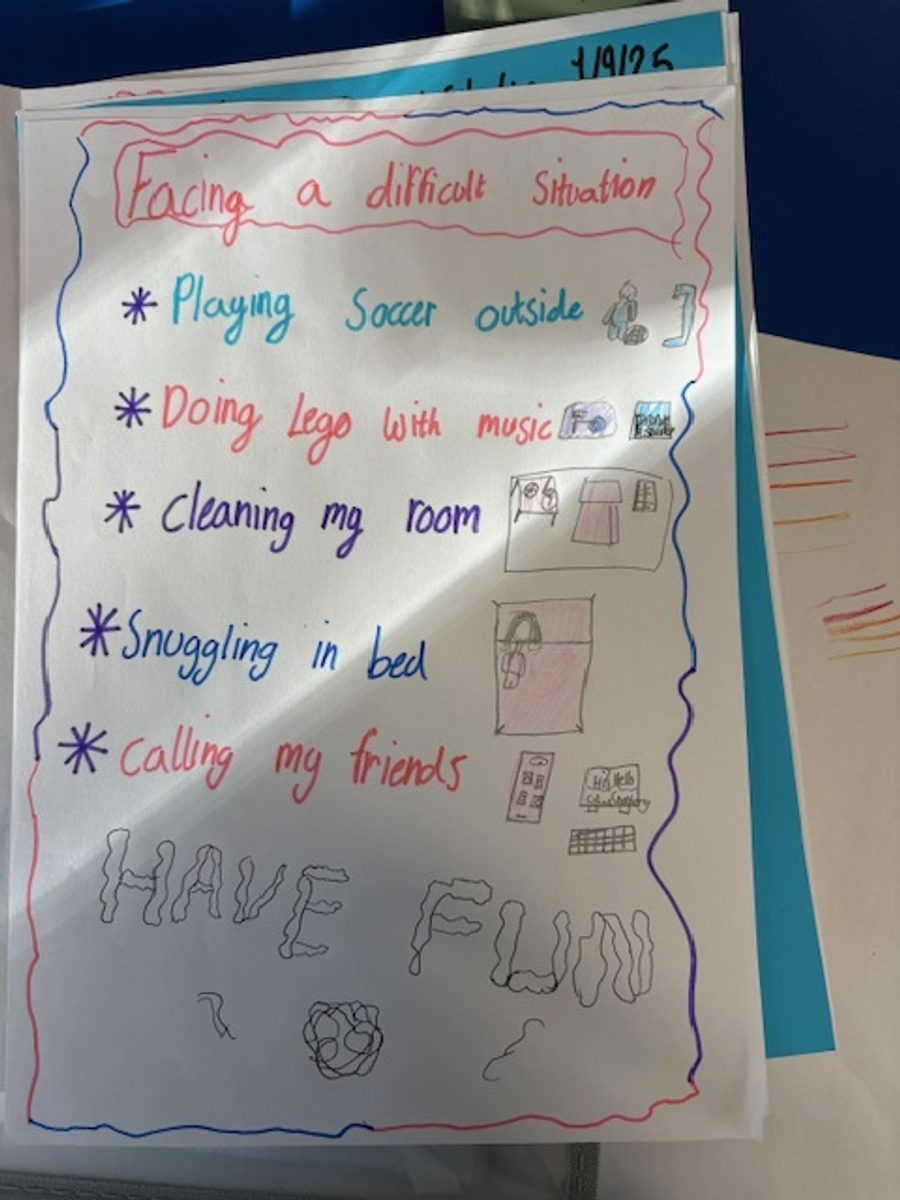 1/9/25
Facing a difficult situation
* Playing Soccer outside
* Doing Lego with music
* Cleaning my room
* Snuggling in bed
* Calling my friends
Hi Hello
HAVE FUN